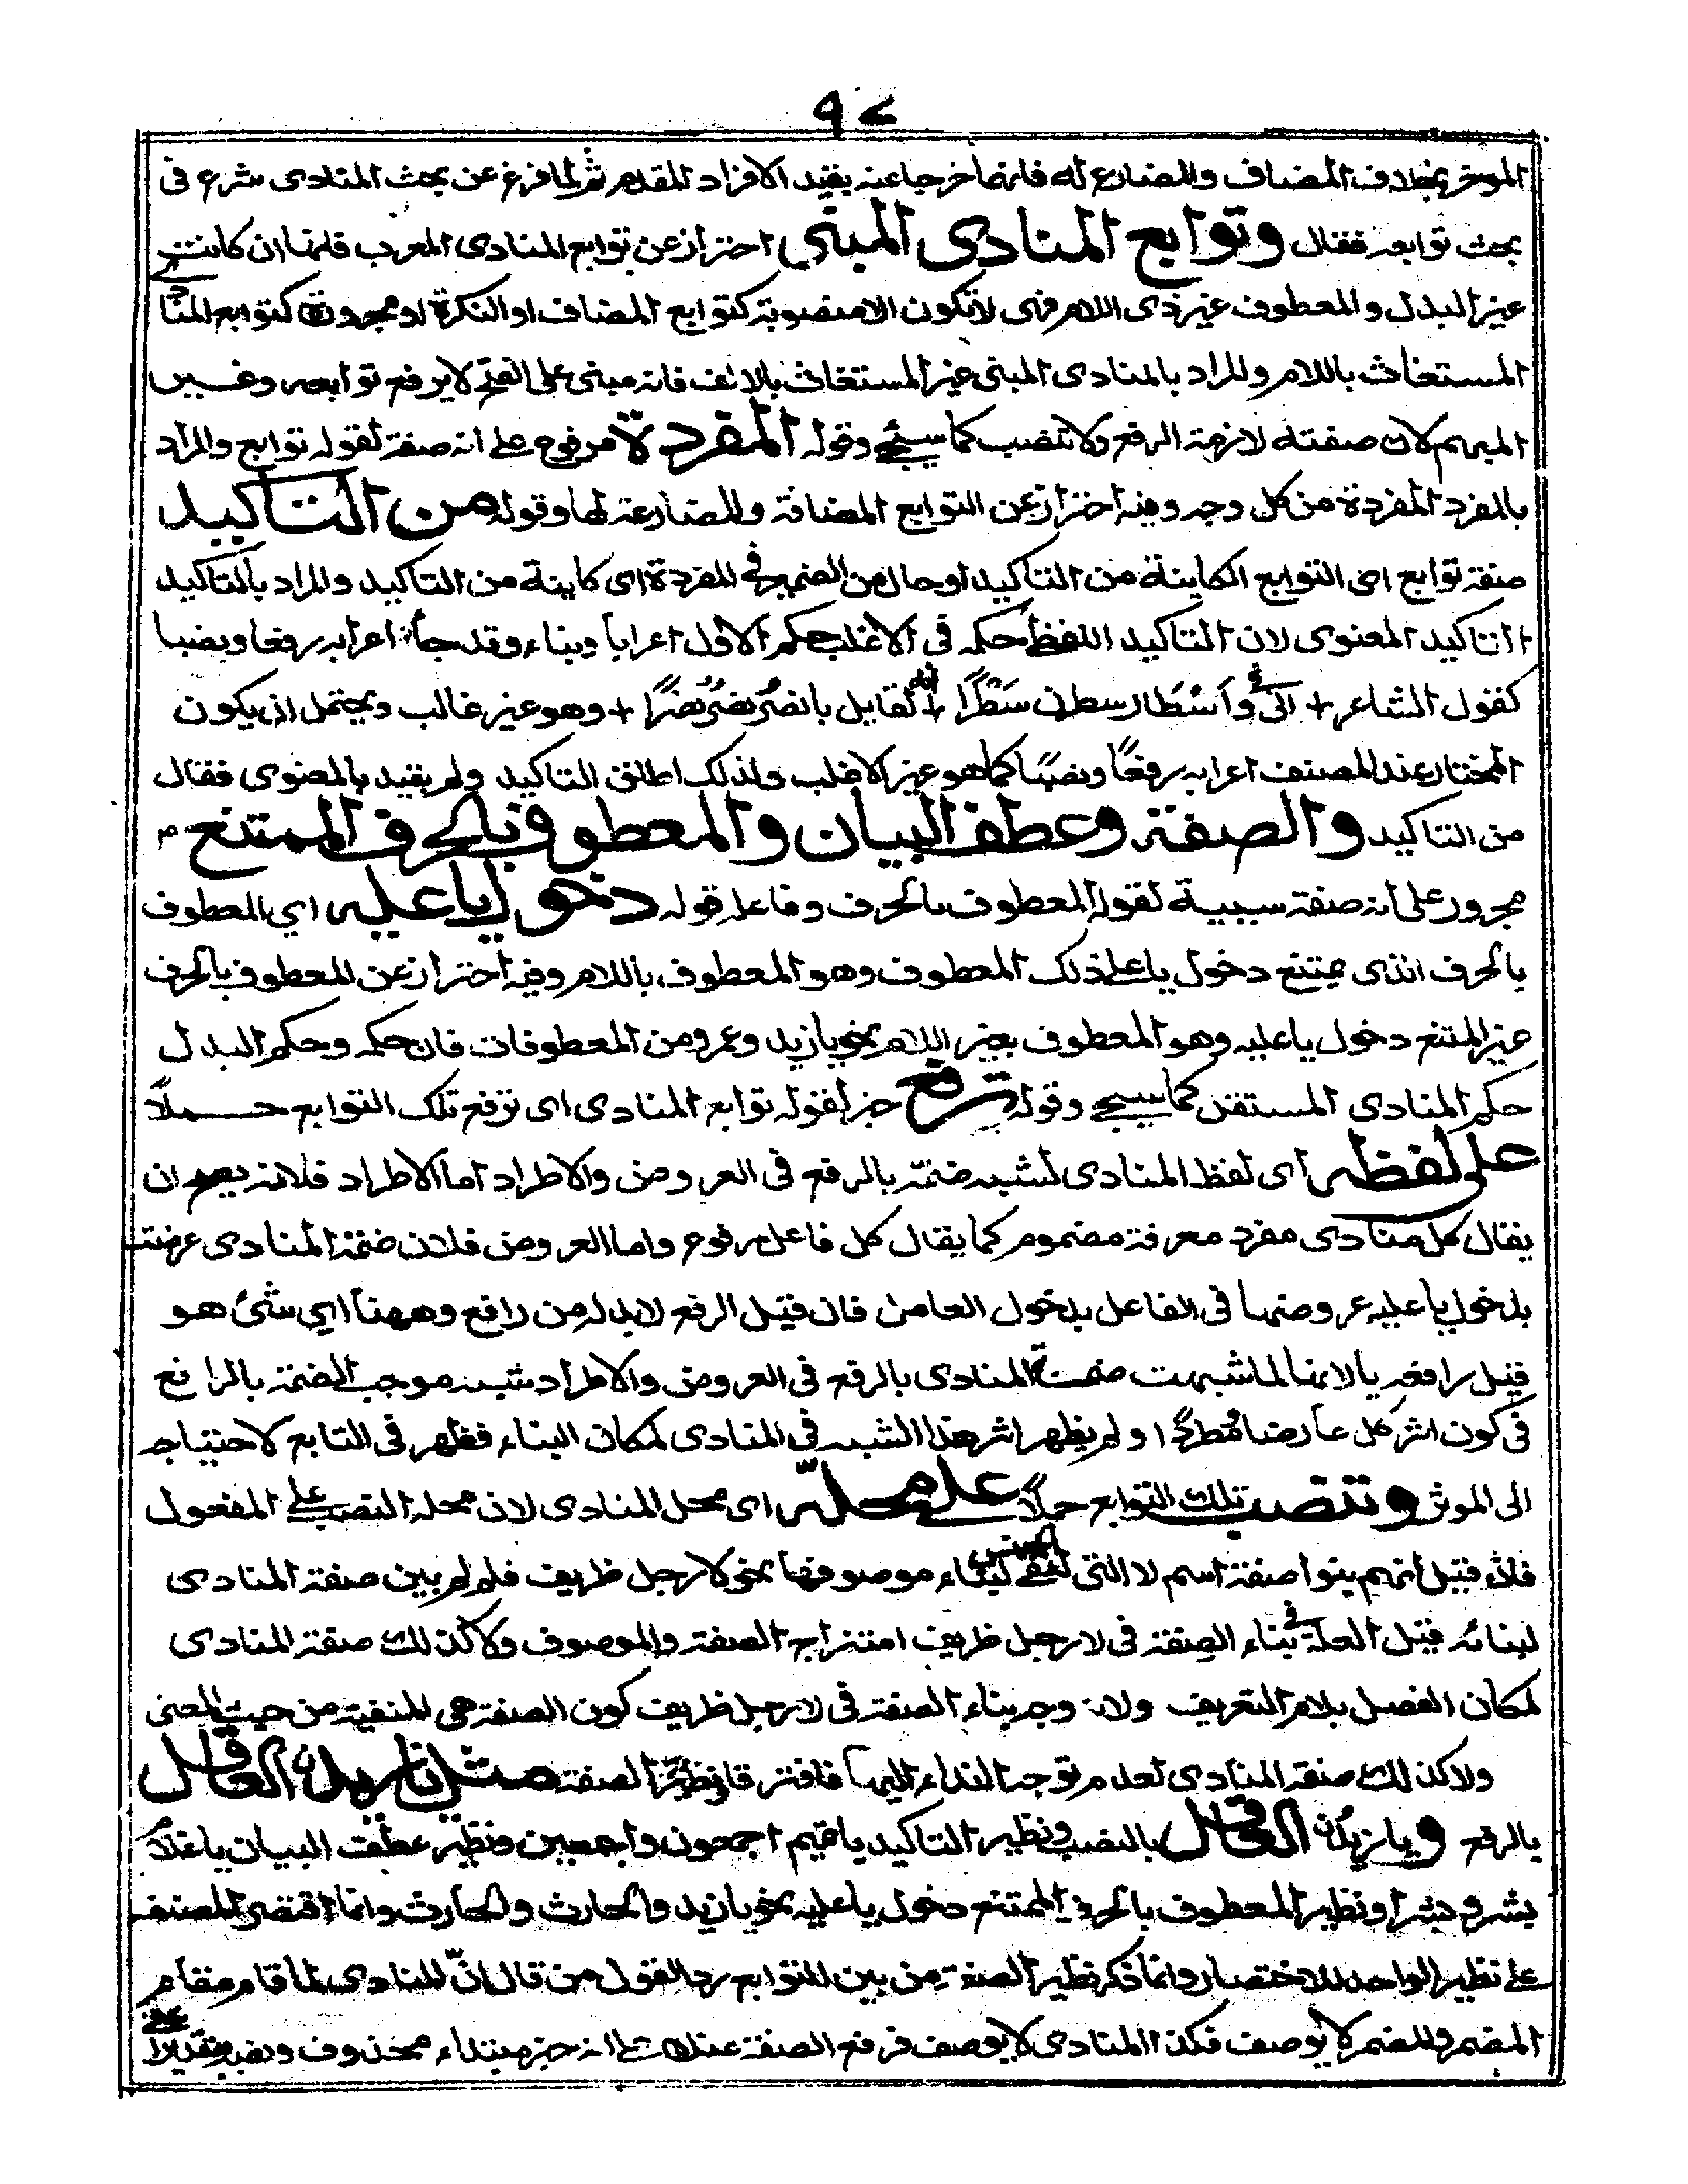 ٩٧
الموخر بخلاف المضاف والمضارع له فانهما خرجا عنه بقيد الافراد المقدم ثم لما فرغ عن بحث المنادى شرع فى
بحث توابعه فقال وتوابع المنادى المبنى احتراز عن توابع المنادى المعرب فانها ان كانت
غير البدل والمعطوف غير ذى اللام فهى لا تكون الا منصوبة كتوابع المضاف او النكرة او مجرورة كتوابع المنادى
المستغاث باللام والمراد بالمنادى المبنى غير المستغاث بالالف فانه مبنى على الفتح لا يرفع توابعه وغير
المبهم لان صفته لازمة الرفع ولا تنصب كما سيجئ وقوله المفردة مرفوع على انه صفة لقوله توابع والمراد
بالمفرد المفردة من كل وجه وفيه احتراز عن التوابع المضافة والمضارعة لها وقوله من التاكيد
صفة توابع اى التوابع الكاينة من التاكيد او حال من الضمير فى المفردة اى كاينة من التاكيد والمراد بالتاكيد
التاكيد المعنوى لان التاكيد اللفظى حكمه فى الاغلب حكم الاول اعرابا وبناء وقد جاء اعرابه رفعا ونصبا
كقول الشاعر + انى واَسْطَار سطرن سَطْرًا + لقايل يا نصرُ نصرٌ نصرًا + وهو غير غالب ويحتمل ان يكون
المختار عند المصنف اعرابه رفعًا ونصبًا كما هو غير الاغلب ولذلك اطلق التاكيد ولم يقيد بالمعنوى فقال
من التاكيد والصفة وعطف البيان والمعطوف بالحرف الممتنع
مجرور على انه صفة سببية لقوله المعطوف بالحرف وفاعله قوله دخول يا عليه اي المعطوف
بالحرف الذى يمتنع دخول يا على ذلك المعطوف وهو المعطوف باللام وفيه احتراز عن المعطوف بالحرف
غير الممتنع دخول يا عليه وهو المعطوف بغير اللام نحو يا زيد وعمرو من المعطوفات فان حكمه وحكم البدل
حكم المنادى المستقل كما سيجئ وقوله ترفع خبر لقوله توابع المنادى اى ترفع تلك التوابع حملاً
على لفظه اى لفظ المنادى لشبه ضمته بالرفع فى العروض والاطراد اما الاطراد فلانه يصح ان
يقال كل منادى مفرد معرفة مضموم كما يقال كل فاعل مرفوع واما العروض فلان ضمة المنادى عرضت
بدخول يا عليه عروضها فى الفاعل بدخول العامل فان قيل الرفع لا بد له من رافع وههنا اي شئ هو
قيل رافعه يا لانها لما شبهت ضمة المنادى بالرفع فى العروض والاطراد شبه موجب الضمة بالرافع
فى كون اثر كل عارضا مطردًا ولم يظهر اثر هذا الشبه فى المنادى لمكان البناء فظهر فى التابع لاحتياجه
الى الموثر وتنصب تلك التوابع حملاً على محلّه اى محل المنادى لان محله النصب على المفعول
فان قيل انهم بنوا صفة اسم لا التى لنفى الجنس لبناء موصوفها نحو لا رجل ظريف فلم لم يبين صفة المنادى
لبنائه قيل العلة فى بناء الصفة فى لا رجل ظريف امتزاج الصفة والموصوف ولا كذلك صفة المنادى
لمكان الفصل بلام التعريف ولان وجه بناء الصفة فى لا رجل ظريف كون الصفة هى المنفية من حيث المعنى
ولا كذلك صفة المنادى لعدم توجه النداء اليها فافترقا ونظير الصفة مثل يا زيد العاقل
بالرفع ويا زيد العاقل بالنصب ونظير التاكيد يا تميم اجمعون واجمعين ونظير عطف البيان يا غلام
بشر وبشرا ونظير المعطوف بالحرف الممتنع دخول يا عليه نحو يا زيد والحارث والحارث وانما اقتصر المصنف
على نظير الواحد للاختصار وانما ذكر نظير الصفة من بين التوابع رد القول من قال انّ المنادى لما قام مقام
المضمر والمضمر لا يوصف فكذا المنادى لا يوصف فرفع الصفة عنده على انه خبر مبتداء محذوف ونصبه بتقدير اعنى